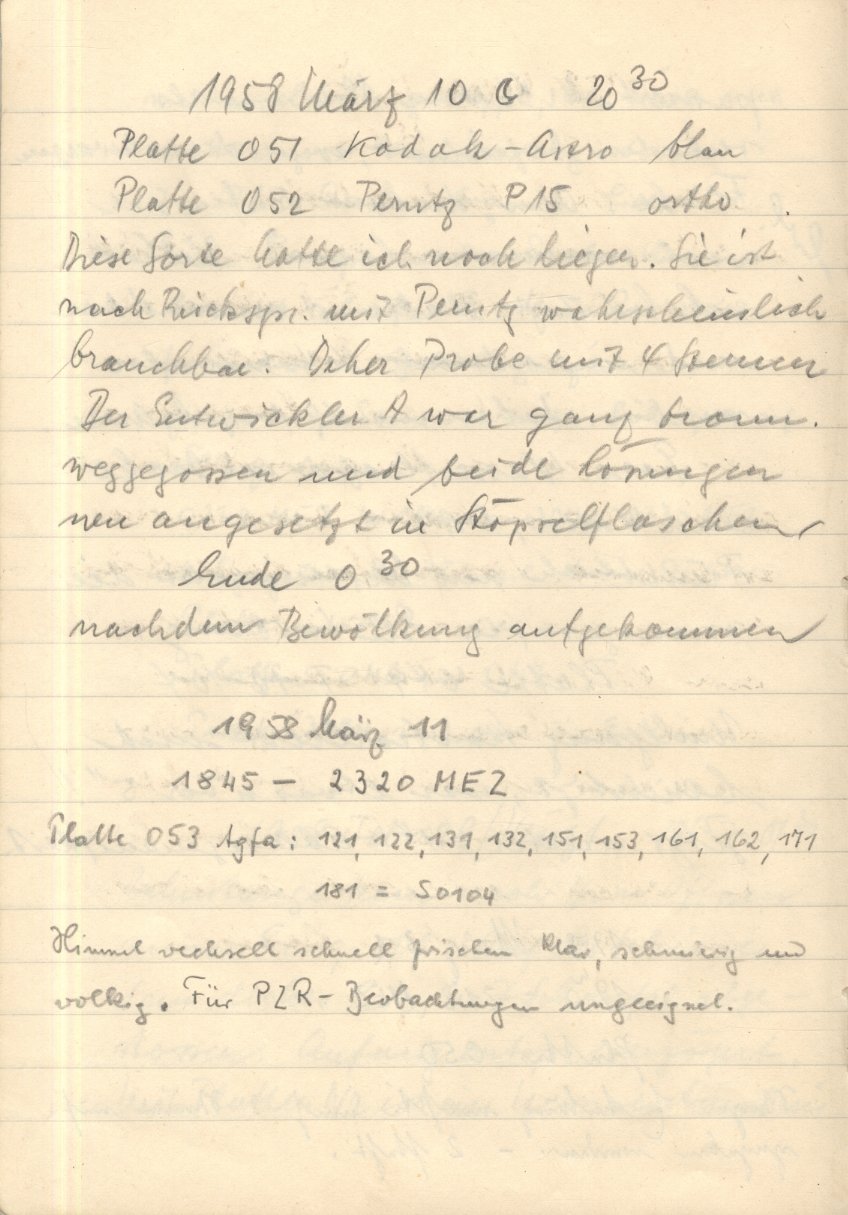 1958 März 10 ☾ 20³⁰
Platte 051 Kodak-Astro blau
Platte 052 Perutz P15 ortho.
Diese Sorte hatte ich noch liegen. Sie ist
nach Rückspr. mit Perutz wahrscheinlich
brauchbar. Daher Probe mit 4 Sternen
Der Entwickler A war ganz braun.
weggegossen und beide Lösungen
neu angesetzt in Stöpselflaschen
Ende 0³⁰
nachdem Bewölkung aufgekommen
1958 März 11
1845 – 2320 MEZ
Platte 053 Agfa: 121, 122, 131, 132, 151, 153, 161, 162, 171
181 = S0104
Himmel wechselt schnell zwischen klar, schmierig und
wolkig. Für PZR-Beobachtungen ungeeignet.